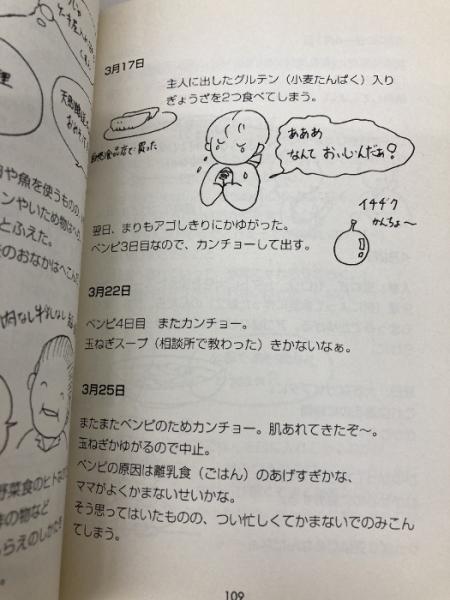 3月17日
主人に出したグルテン（小麦たんぱく）入り
ぎょうざを2つ食べてしまう。
あああ
なんて おいしいんだぁ！
イチヂク
かんちょ〜
翌日、まりもアゴしきりにかゆがった。
ベンピ3日目なので、カンチョーして出す。
3月22日
ベンピ4日目　またカンチョー。
玉ねぎスープ（相談所で教わった）きかないなぁ。
3月25日
またまたベンピのためカンチョー。肌あれてきたぞ〜。
玉ねぎかゆがるので中止。
ベンピの原因は離乳食（ごはん）のあげすぎかな、
ママがよくかまないせいかな。
そう思ってはいたものの、つい忙しくてかまないでのみこん
でしまう。
や魚を使うものの、
ンやいため物は
とふえた。
のおなかはへこんだ
野菜食のヒト
の物など
らえのしかた
109